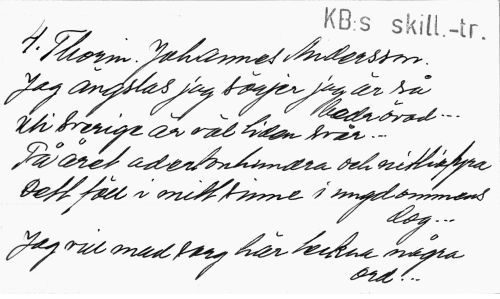 KB:s skill.-tr.
4. Thorin. Johannes Andersson.
Jag ängslas jag sörjer jag är så
bedrövad...
Uti Sverige är väl tiden svår...
På året adertonhundra och nittiofyra
Dett föll i mitt sinne i ungdommens
dag...
Jag vill med sorg här teckna några
ord...